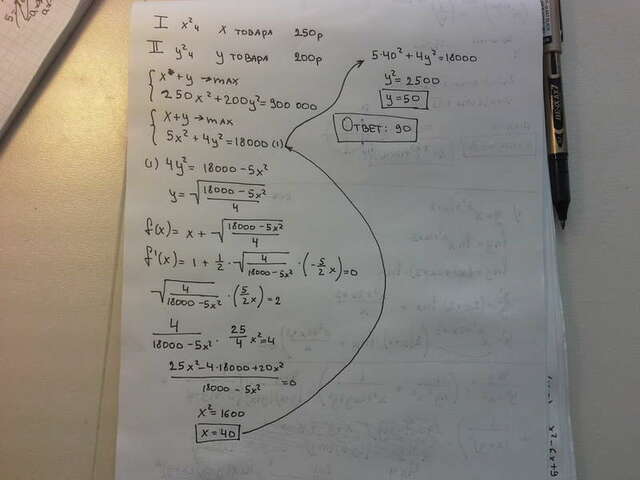 I x²ч x товара 250р
II y²ч y товара 200р
{ x+y → max
250x²+200y²=900 000
{ x+y → max
5x²+4y²=18000 (1)
(1) 4y²=18000-5x²
y=√((18000-5x²)/4)
f(x)= x+√((18000-5x²)/4)
f'(x)= 1+1/2·√(4/(18000-5x²))·(-5/2x)=0
√(4/(18000-5x²))·(5/2x)=2
4/(18000-5x²)·25/4x²=4
(25x²-4·18000+20x²)/(18000-5x²)=0
x²=1600
x=40
5·40²+4y²=18000
y²=2500
y=50
Ответ: 90